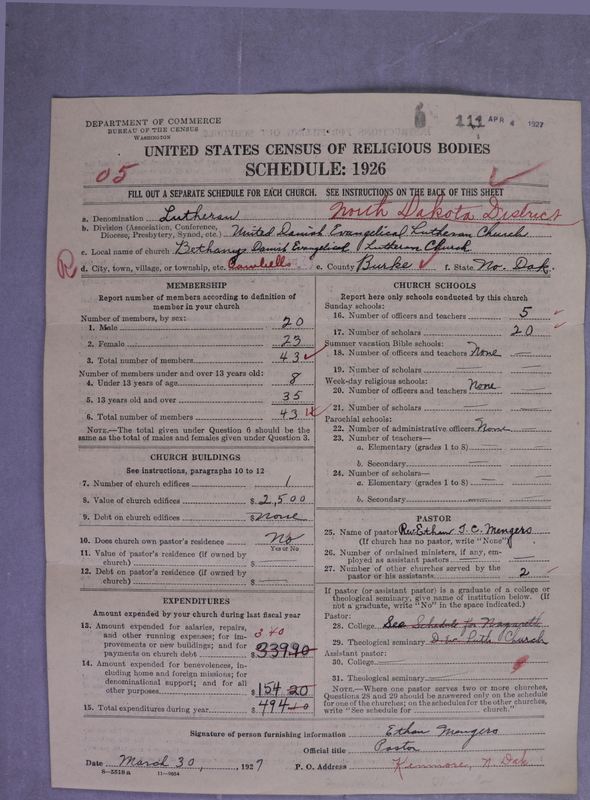 DEPARTMENT OF COMMERCE
BUREAU OF THE CENSUS
WASHINGTON
111 APR 4 1927
UNITED STATES CENSUS OF RELIGIOUS BODIES
SCHEDULE: 1926
05
FILL OUT A SEPARATE SCHEDULE FOR EACH CHURCH. SEE INSTRUCTIONS ON THE BACK OF THIS SHEET
a. Denomination Lutheran North Dakota District
b. Division (Association, Conference, Diocese, Presbytery, Synod, etc.) United Danish Evangelical Lutheran Church
c. Local name of church Bethany Danish Evangelical Lutheran Church
R d. City, town, village, or township, etc. e. County Burke f. State No. Dak.
MEMBERSHIP
Report number of members according to definition of member in your church
Number of members, by sex:
1. Male 20
2. Female 23
3. Total number of members 43
Number of members under and over 13 years old:
4. Under 13 years of age 8
5. 13 years old and over 35
6. Total number of members 43
NOTE.—The total given under Question 6 should be the same as the total of males and females given under Question 3.
CHURCH BUILDINGS
See instructions, paragraphs 10 to 12
7. Number of church edifices 1
8. Value of church edifices $2,500
9. Debt on church edifices $None
10. Does church own pastor's residence? No
Yes or No
11. Value of pastor's residence (if owned by church) $
12. Debt on pastor's residence (if owned by church) $
EXPENDITURES
Amount expended by your church during last fiscal year
13. Amount expended for salaries, repairs, and other running expenses; for improvements or new buildings; and for payments on church debt 340 $339.90
14. Amount expended for benevolences, including home and foreign missions; for denominational support; and for all other purposes $154.20
15. Total expenditures during year $494.10
CHURCH SCHOOLS
Report here only schools conducted by this church
Sunday schools:
16. Number of officers and teachers 5
17. Number of scholars 20
Summer vacation Bible schools:
18. Number of officers and teachers None
19. Number of scholars
Week-day religious schools:
20. Number of officers and teachers None
21. Number of scholars
Parochial schools:
22. Number of administrative officers None
23. Number of teachers—
a. Elementary (grades 1 to 8)
b. Secondary
24. Number of scholars—
a. Elementary (grades 1 to 8)
b. Secondary
PASTOR
25. Name of pastor Rev. Ethan Mengers
(If church has no pastor, write "None")
26. Number of ordained ministers, if any, employed as assistant pastors
27. Number of other churches served by the pastor or his assistants 2
If pastor (or assistant pastor) is a graduate of a college or theological seminary, give name of institution below. (If not a graduate, write "No" in the space indicated.)
Pastor:
28. College See Schedule for Nazareth
29. Theological seminary Luth Church
Assistant pastor:
30. College
31. Theological seminary
NOTE.—Where one pastor serves two or more churches, Questions 28 and 29 should be answered only on the schedule for one of the churches; on the schedules for the other churches, write "See schedule for church."
Signature of person furnishing information Ethan Mengers
Official title Pastor
Date March 30, 1927 P. O. Address Kenmare, N. Dak.
8—5518a 11—9034